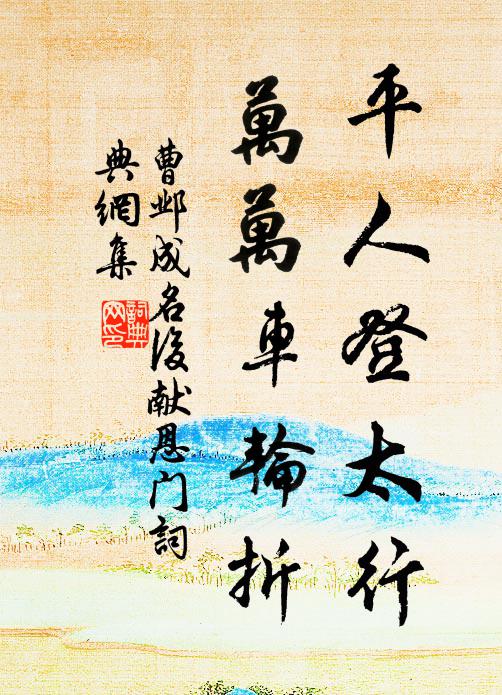 平人登太行
萬萬車輪折
曹邺成名後献恩门詞
典網集
詞典
网印